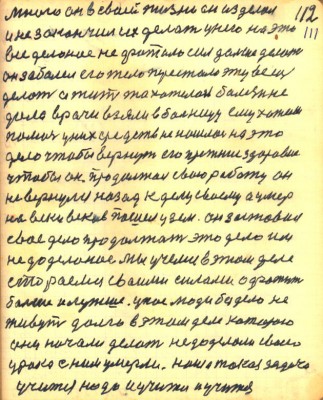 много он в своей жизни он изделал 112
и не закончил их делать у него на это 111
все делоное не фратало сил дальше делать
он забалел его тело перестало эту вещ
делот а жить та хотелась балезнь не
дала врачи взяли в балницу ему хотели
помоч у них средств не нашлос на это
дело чтобы вернут его прежние здоровие
чтобы он. продолжал свою работу он
не вернулся назад к делу своему а умер
на веки веков пошел у зем. он заставил
свое дело продолжат это дело им
не доделоное. мы учемся в этом деле
стораемся своими силами сфротит
болше и лутше. у нас люди без дела не
живут долго в этом деле которою
они начали делат недоделали своего
урока с ним умерли. наша такая задача
учится надо и учится и учится